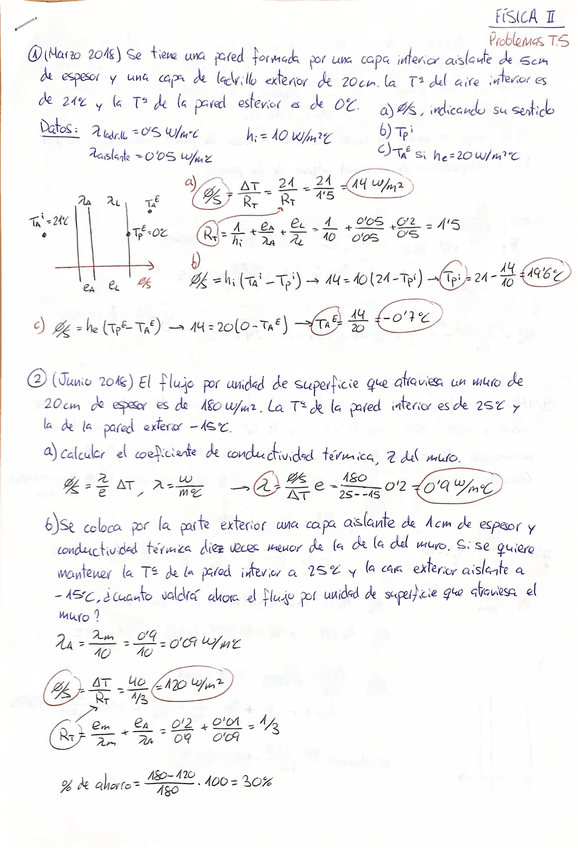 FÍSICA II
Problemas T.5
① (Marzo 2018) Se tiene una pared formada por una capa interior aislante de 5cm
de espesor y una capa de ladrillo exterior de 20cm. La Tª del aire interior es
de 21ºC y la Tª de la pared esterior es de 0ºC.
a) Ø/S, indicando su sentido
Datos: λladrillo = 0'5 W/mºC hi = 10 W/m²ºC
b) Tpi
λaislante = 0'05 W/mºC
c) TAE si he = 20 W/m²ºC
a) Ø/S = ΔT/RT = 21/RT = 21/1'5 = 14 W/m²
λA λL
TAi = 21ºC TAE
TPE = 0ºC
eA eL Ø/S
RT = 1/hi + eA/λA + eL/λL = 1/10 + 0'05/0'05 + 0'2/0'5 = 1'5
b)
Ø/S = hi (TAi - TPi) → 14 = 10 (21 - TPi) → TPi = 21 - 14/10 = 19'6ºC
c) Ø/S = he (TPE - TAE) → 14 = 20 (0 - TAE) → TAE = 14/20 = -0'7ºC
② (Junio 2018) El flujo por unidad de superficie que atraviesa un muro de
20cm de espesor es de 180 W/m². La Tª de la pared interior es de 25ºC y
la de la pared exterior -15ºC.
a) calcular el coeficiente de conductividad térmica, λ del muro.
Ø/S = λ/e ΔT, λ = W/mºC → λ = Ø/S/ΔT e = 180/25--15 0'2 = 0'9 W/mºC
b) Se coloca por la parte exterior una capa aislante de 1cm de espesor y
conductividad térmica diez veces menor de la de la del muro. Si se quiere
mantener la Tª de la pared interior a 25ºC y la cara exterior aislante a
-15ºC, ¿cuanto valdrá ahora el flujo por unidad de superficie que atraviesa el
muro?
λA = λm/10 = 0'9/10 = 0'09 W/mºC
Ø/S = ΔT/RT = 40/1/3 = 120 W/m²
RT = em/λm + eA/λA = 0'2/0'9 + 0'01/0'09 = 1/3
% de ahorro = 180-120/180 · 100 = 30%